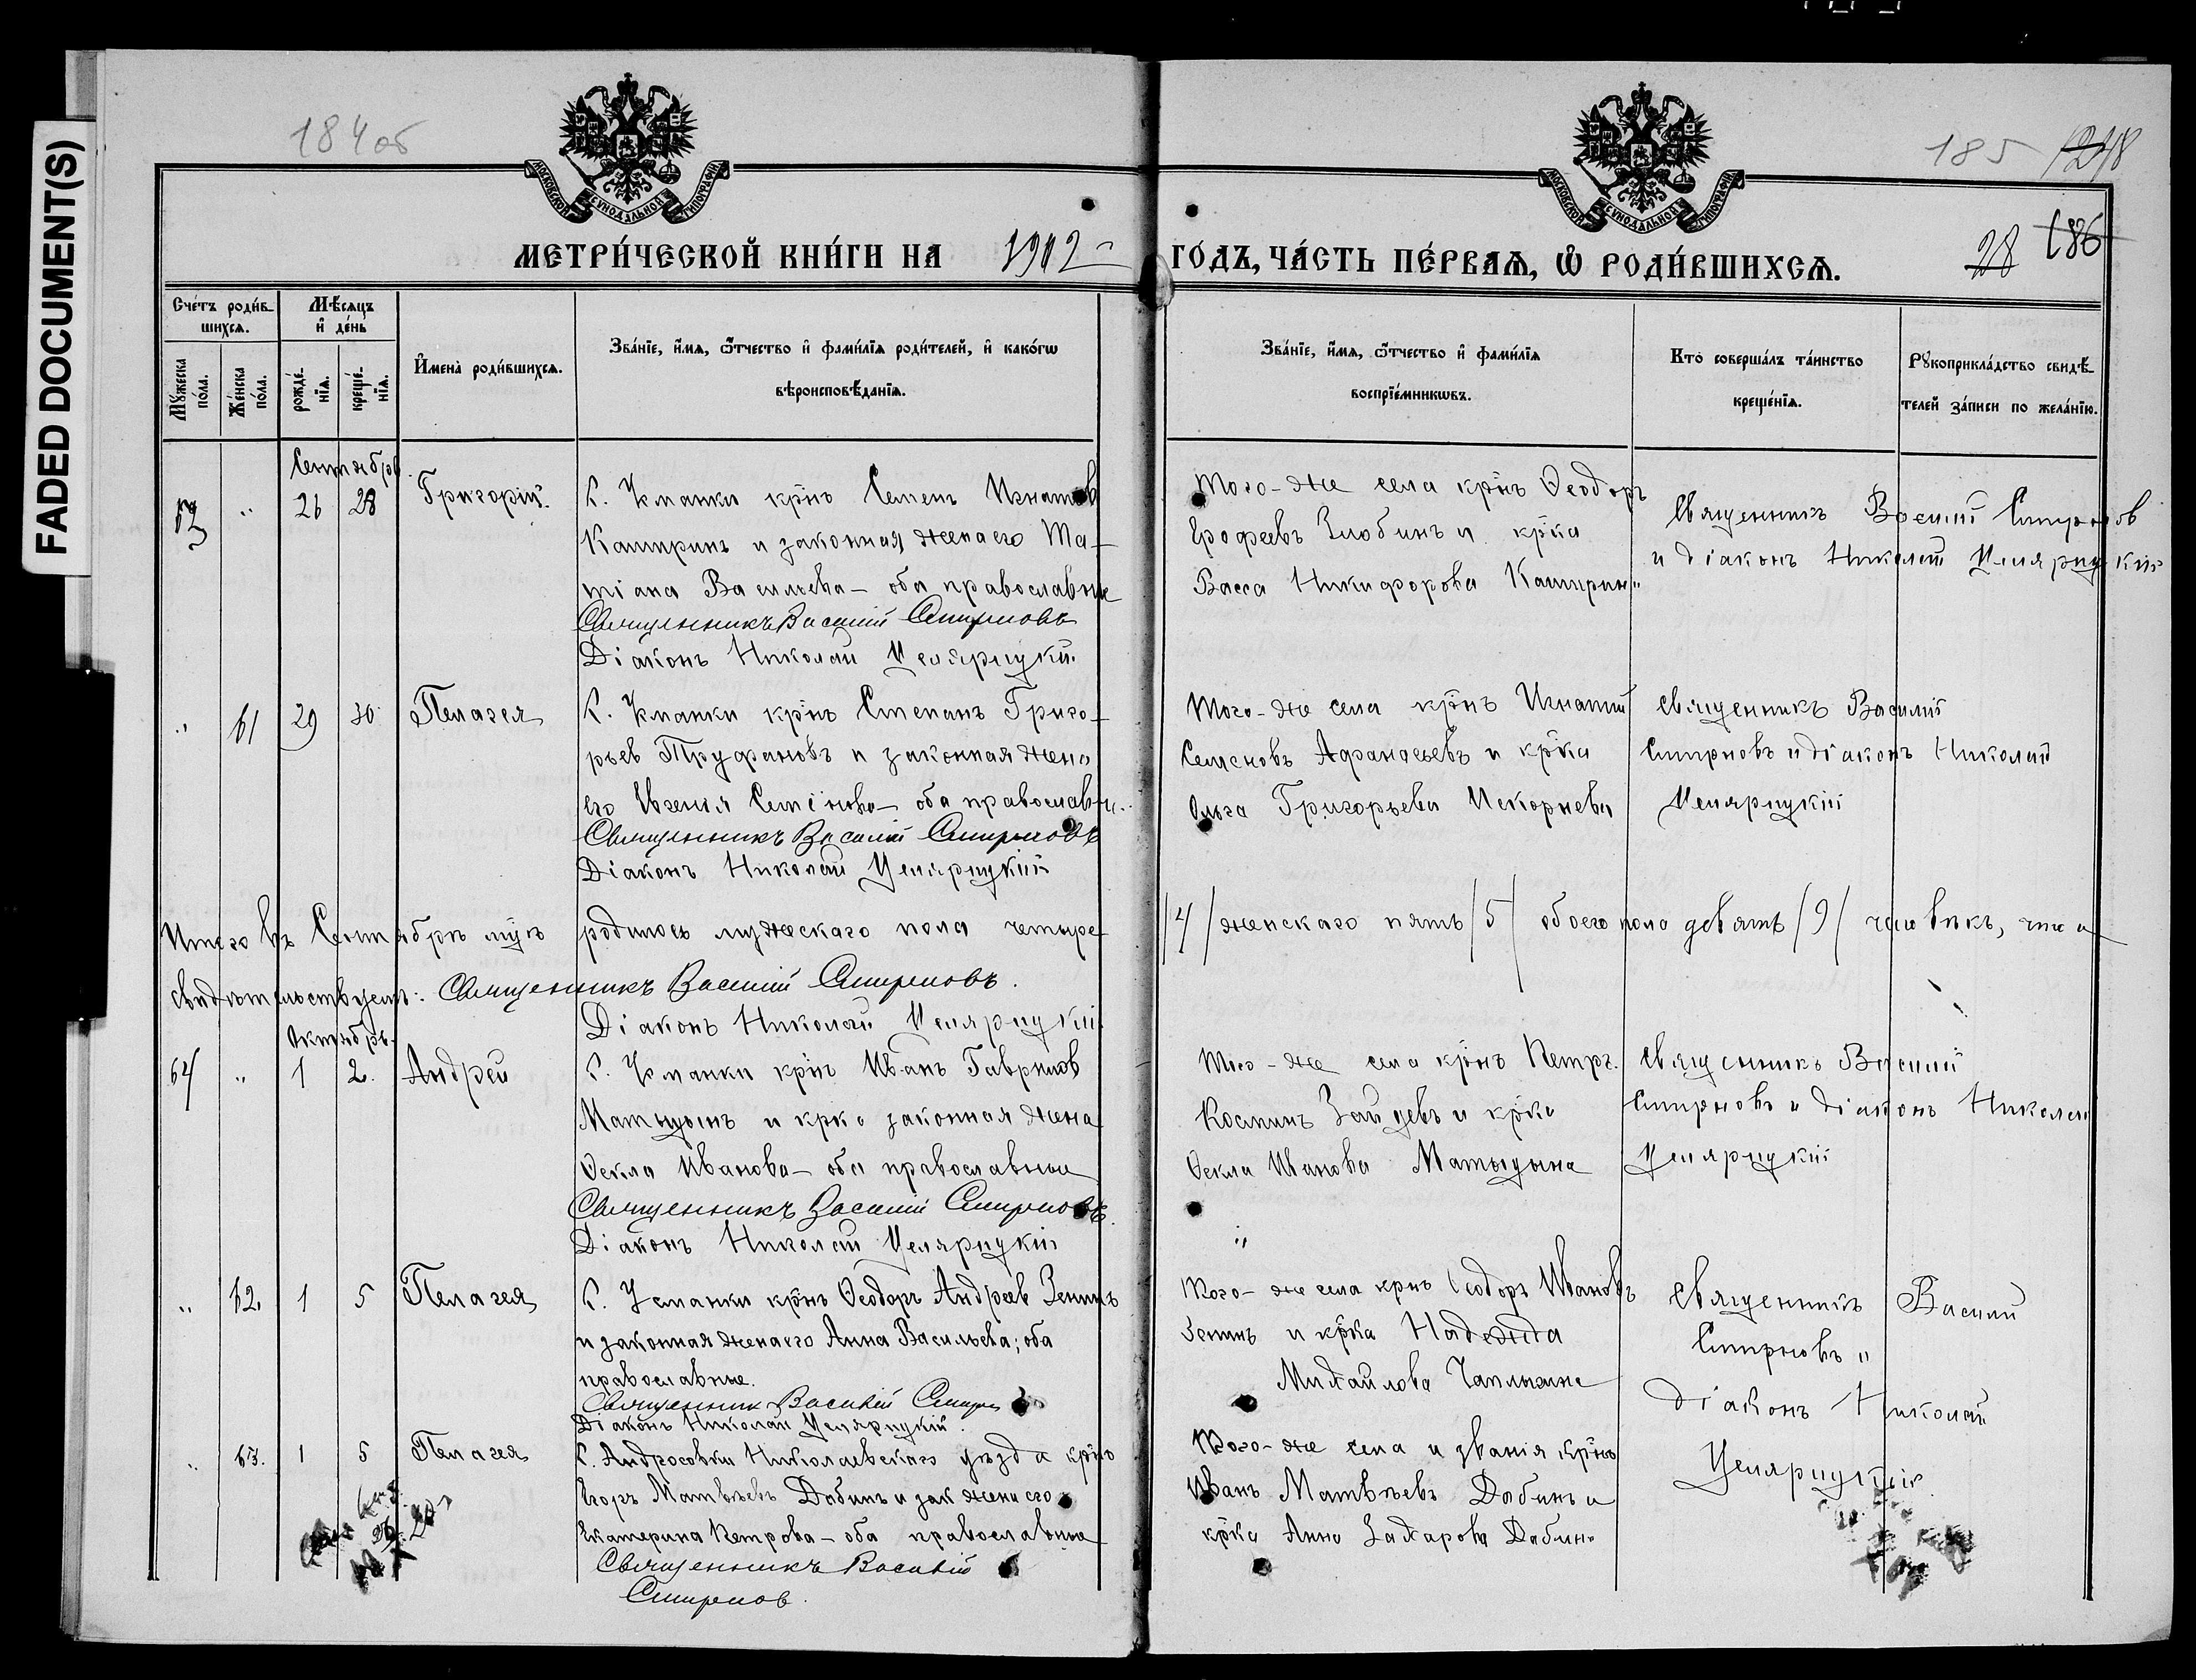 FADED DOCUMENT(S)
184 об
185
МОСКОВСКОЙ СУНОДАЛЬНОЙ ТИПОГРАФІИ
МОСКОВСКОЙ СУНОДАЛЬНОЙ ТИПОГРАФІИ
28 186
МЕТРИ́ЧЕСКОЙ КНИ́ГИ НА 1912 ГО́ДЪ, ЧА́СТЬ ПЕ́РВАѦ, Ѡ РОДИ́ВШИХСѦ.
Сче́тъ роди́в-
шихсѧ.
Мѣ́сяцъ
и҆ де́нь
Мꙋ́жеска
по́ла.
Же́нска
по́ла.
рожде́-
нїѧ.
креще́-
нїѧ.
И҆мена̀ роди́вшихсѧ.
Зва́нїе, и҆́мѧ, ѻ҆́тчество и҆ фами́лїѧ роди́телей, и҆ како́гѡ
вѣроисповѣ́данїѧ.
Зва́нїе, и҆́мѧ, ѻ҆́тчество и҆ фами́лїѧ
воспрїе́мникѡвъ.
Кто̀ соверша́лъ та́инство
креще́нїѧ.
Рꙋкоприкла́дство свидѣ́-
телей за́писи по жела́нїю.
Сентябрь
26 28 Григорій
С. Усманки крнъ Семенъ Игнатов
Каширинъ и законная жена его Та-
тіана Васильева – оба православные
Священникъ Василій Смирновъ
Діаконъ Николай Целярицкій
Того-же села крнъ Ѳеодоръ
Ерофеевъ Злобинъ и крка
Васса Никифорова Каширин
Священникъ Василій Смирнов
и діаконъ Николай Целярицкій
" 61 29 30 Пелагея
С. Усманки крнъ Степанъ Григо-
рьев Труфановъ и законная жена
его Евгенія Семёнова – оба православн
Священникъ Василій Смирновъ
Діаконъ Николай Целярицкій
Того-же села крнъ Игнатій
Семеновъ Афанасьевъ и крка
Ольга Григорьева
Священникъ Василій
Смирновъ и діаконъ Николай
Целярицкій
Итого въ Сентябрѣ родилось мужескаго пола четыре /4/ женскаго пять /5/ обоего пола девять /9/ человѣкъ, что и
свидѣтельствуемъ: Священникъ Василій Смирновъ.
Діаконъ Николай Целярицкій
Октябрь
64 " 1 2. Андрей
С. Усманки крнъ Иванъ Гаврилов
Матыцынъ и крка законная жена
Ѳекла Иванова – оба православные
Священникъ Василій Смирновъ.
Діаконъ Николай Целярицкій
Того-же села крнъ Петръ
Косминъ Зайцевъ и крка
Ѳекла Иванова Матыцына
Священникъ Василій
Смирновъ и діаконъ Николай
Целярицкій
" 62. 1 5 Пелагея
С. Усманки крнъ Ѳеодоръ Андреев Зенинъ
и законная жена его Анна Васильева; оба
православные.
Священник Василій Смирн
Діаконъ Николай Целярицкій.
Того-же села крнъ Ѳеодоръ Ивановъ
Зенинъ и крка Надежда
Михайлова Чаплыгина
Священникъ Василій
Смирновъ и
діаконъ Николай
Целярицкій
" 63. 1 5 Пелагея
С. Андросовки Николаевскаго уѣзда крнъ
Егоръ Матвѣевъ Дабинъ и зак жена его
Екатерина Петрова – оба православные
Священникъ Василій
Смирнов.
Того-же села и званія крнъ
Иванъ Матвѣевъ Дабинъ и
крка Анна Захарова Дабина